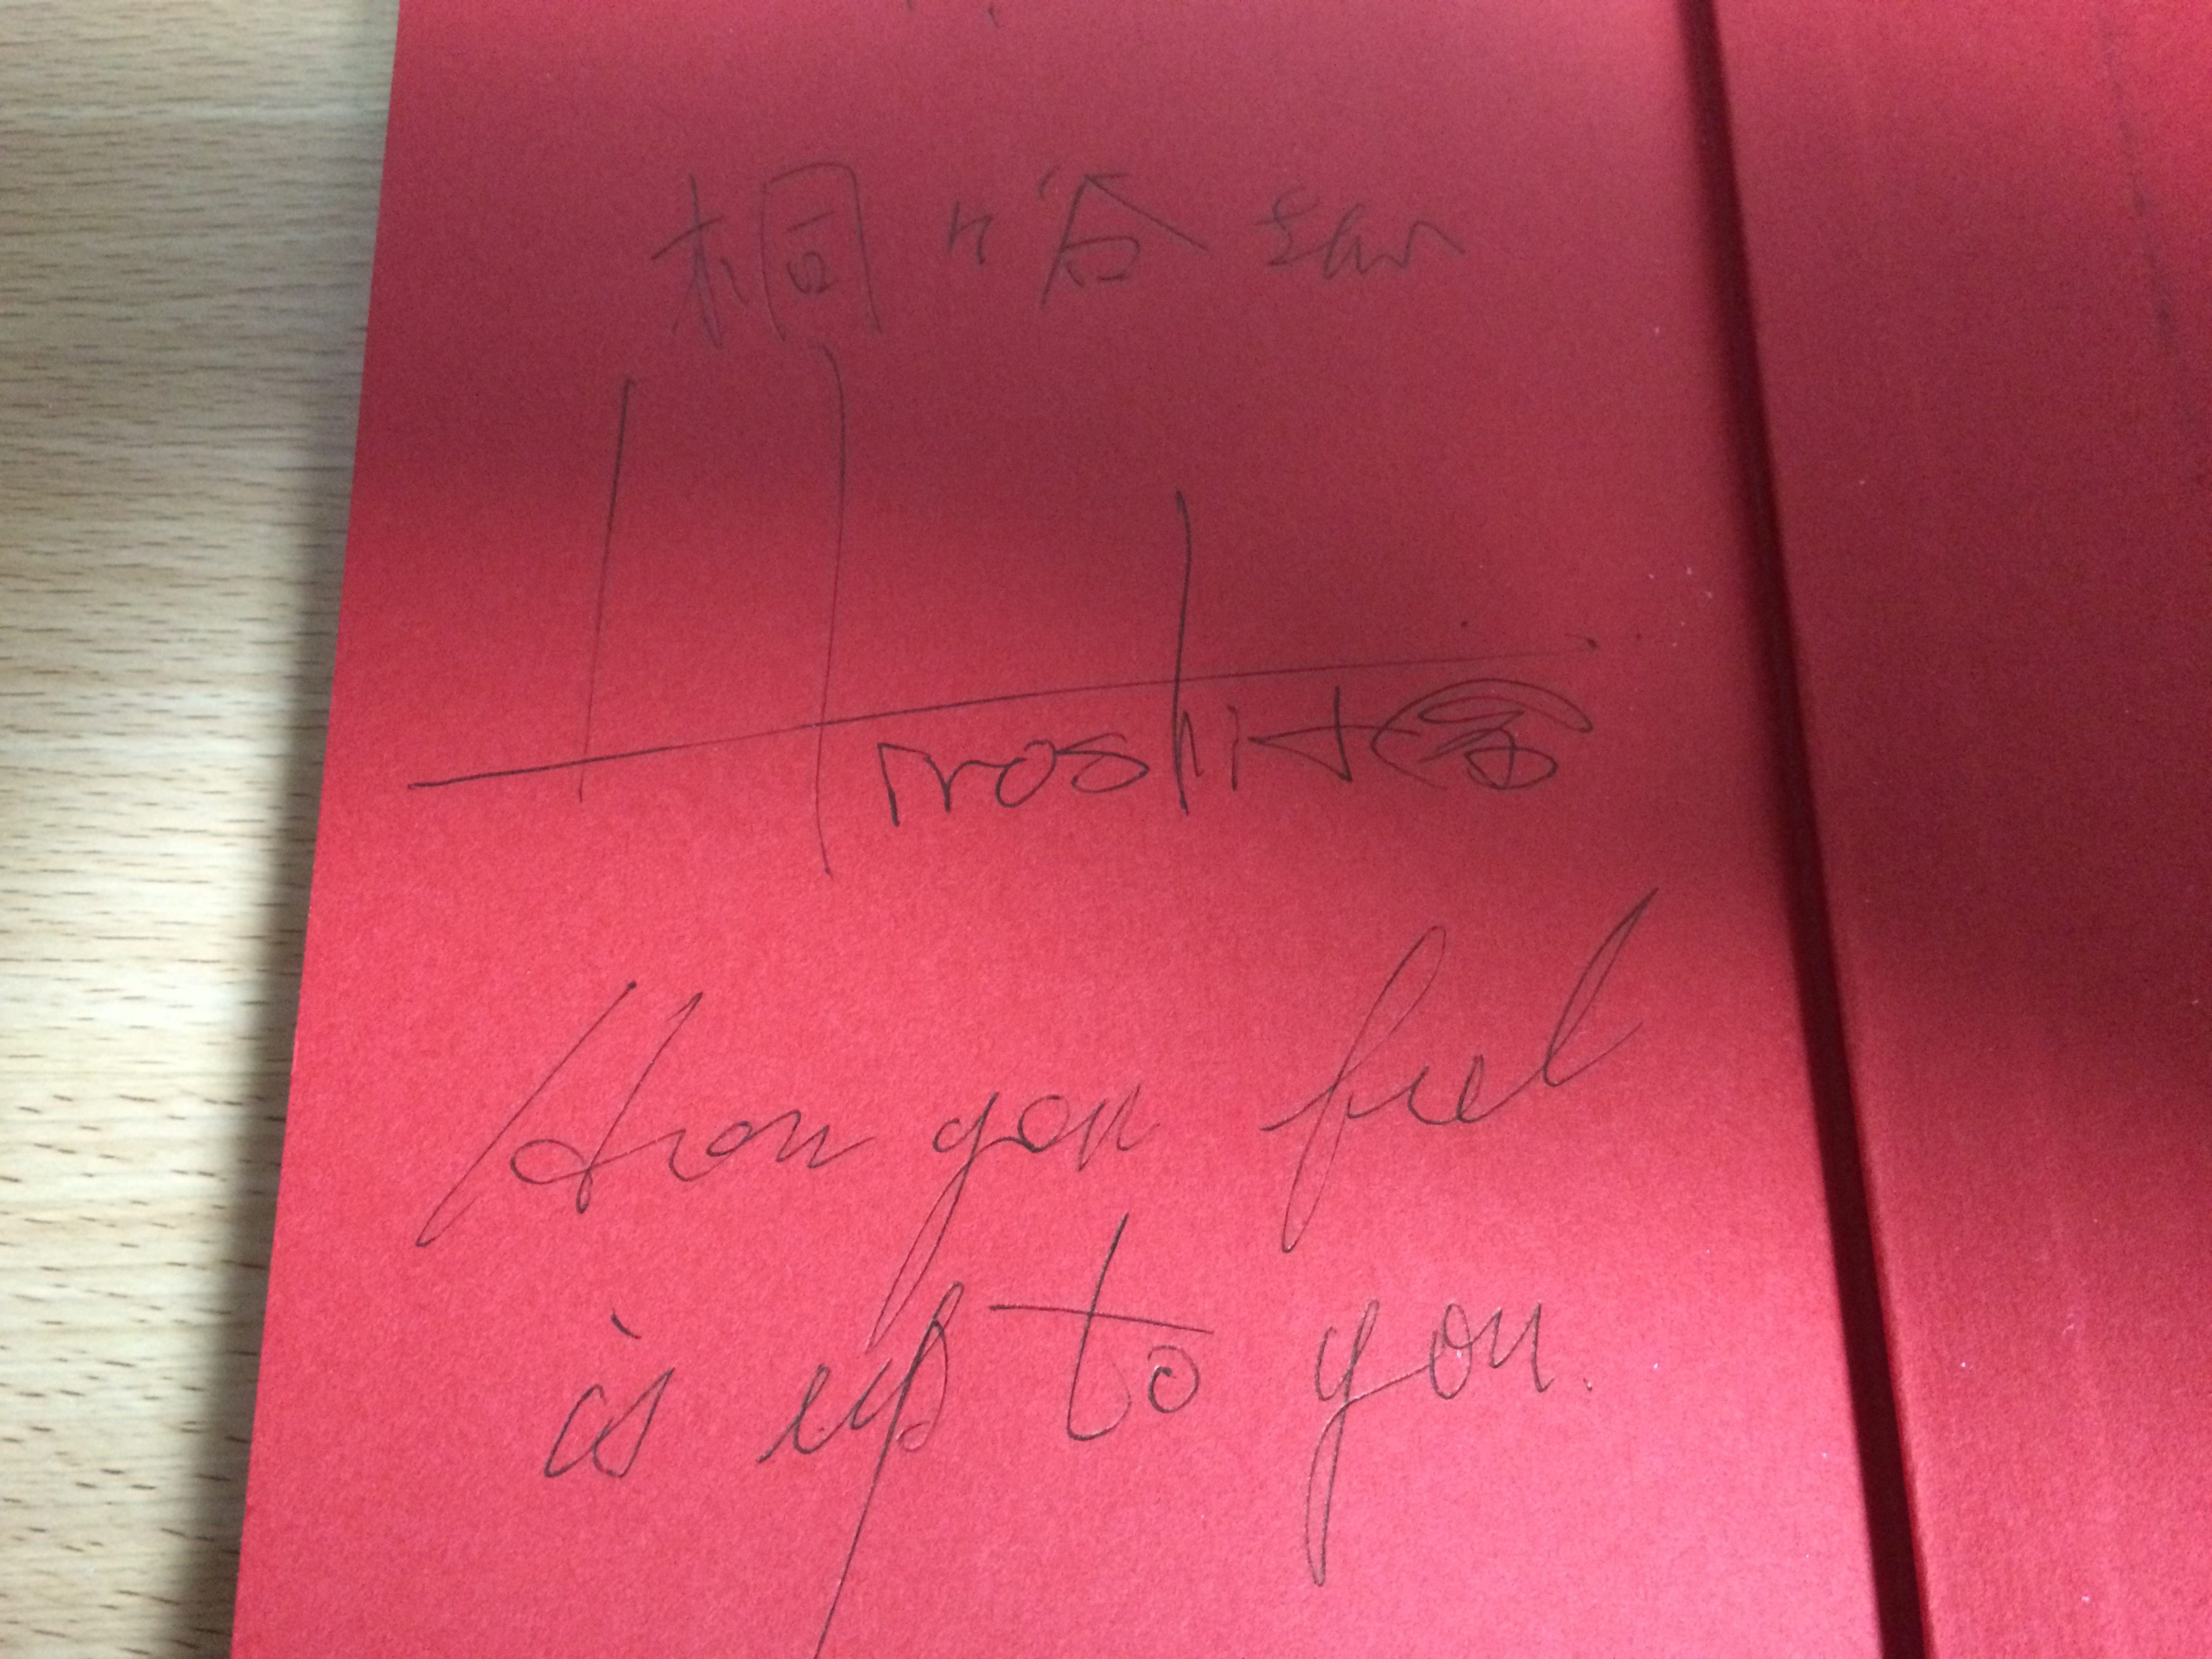 桐ヶ谷さん
Hiroshi
How you feel
is up to you.